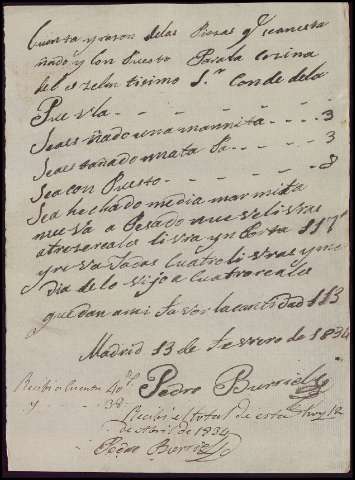 Cuenta y razon delas Piesas q.e se an esta
ñado y Con Puesto Para la Cosina
del es zelen tisimo S.r Conde dela
Pue vla
Seaes ñado una marmita 3
Seaes tañado una ta Sa 3
Sea con Puesto 8
Sea hechado media marmita
nueva a Pesado nueve livras
atrese reales livra ynporta 117
y reva Jadas cuatro livras y me
dia de lo viejo a cuatro reales
quedan ami favor la cantidad 113
Madrid 13 de febrero de 1834
Recibi a cuenta 40
Pedro Burriel
y 38
Recibi el total de esta hoy 12
de Abril de 1834
Pedro Burriel